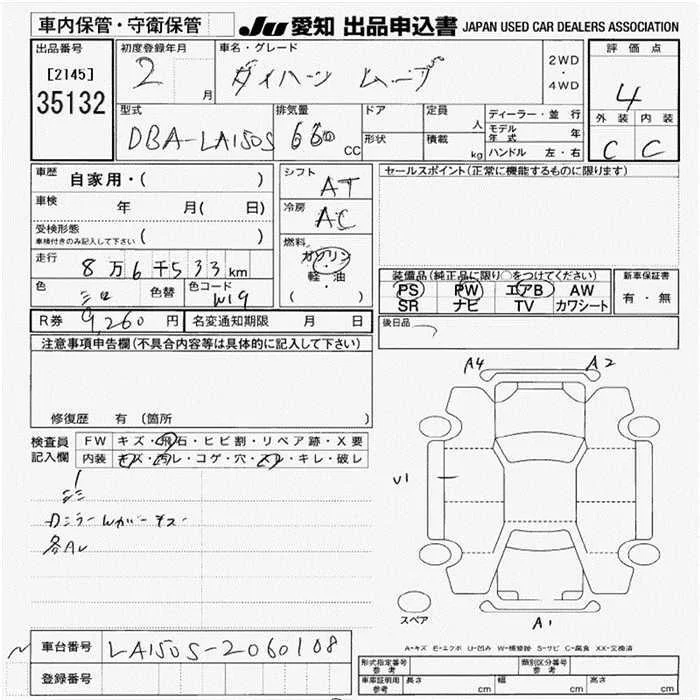 車内保管・守衛保管
JU 愛知 出品申込書 JAPAN USED CAR DEALERS ASSOCIATION
出品番号 初度登録年月 車名・グレード 評価点
[2145] 2 月 ダイハーツ ムーブ 2WD・4WD 4
35132
型式 排気量 ドア 定員 人 ディーラー・並行 外装 内装
DBA-LA150S 660 CC 形状 積載 kg モデル年式 年 C C
ハンドル 左・右
車歴 自家用・( ) シフト AT セールスポイント(正常に機能するものに限ります)
車検 年 月( 日) 冷房 AC
受検形態
車検付きのみ記入して下さい ( ) 燃料 ガソリン・軽・油 ( )
走行 8万6千533km 装備品(純正品に限り○をつけてください) 新車保証書
色 色替 色コード W19 PS PW エアB AW 有・無
SR ナビ TV カワシート
R券 9,260 円 名変通知期限 月 日 後日品
注意事項申告欄(不具合内容等は具体的に記入して下さい)
修復歴 有 (箇所 )
検査員記入欄 FW キズ・飛石・ヒビ割・リペア跡・X要
内装 キズ・汚レ・コゲ・穴・スレ・キレ・破レ
各A
A4 A2
U1
A1
スペア
A-キズ E-エクボ U-凹み W-補修跡 S-サビ C-腐食 XX-交換済
車台番号 LA150S-2060108
登録番号
形式指定番号 参考 類別区分番号 参考
車庫証明用 参考 長さ cm 幅 cm 高さ cm